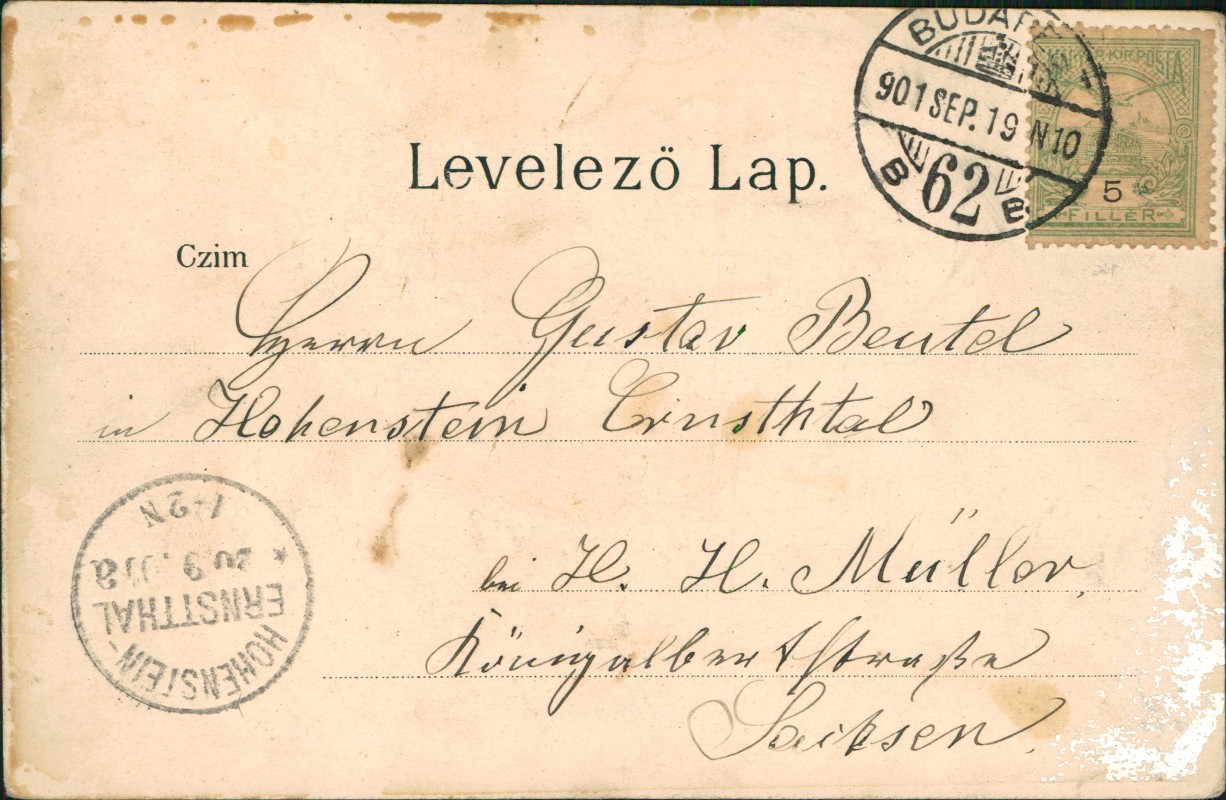 BUDAPEST
901 SEP. 19 N10
B 62 B
MAGYAR KIR. POSTA
5
FILLER
Levelező Lap.
Czim
Herrn Gustav Beutel
in Hohenstein Ernsthtal
bei H. H. Müller,
Königalbertstraße
Sachsen.
HOHENSTEIN-
ERNSTTHAL
* 20 9 01 a
1-2N